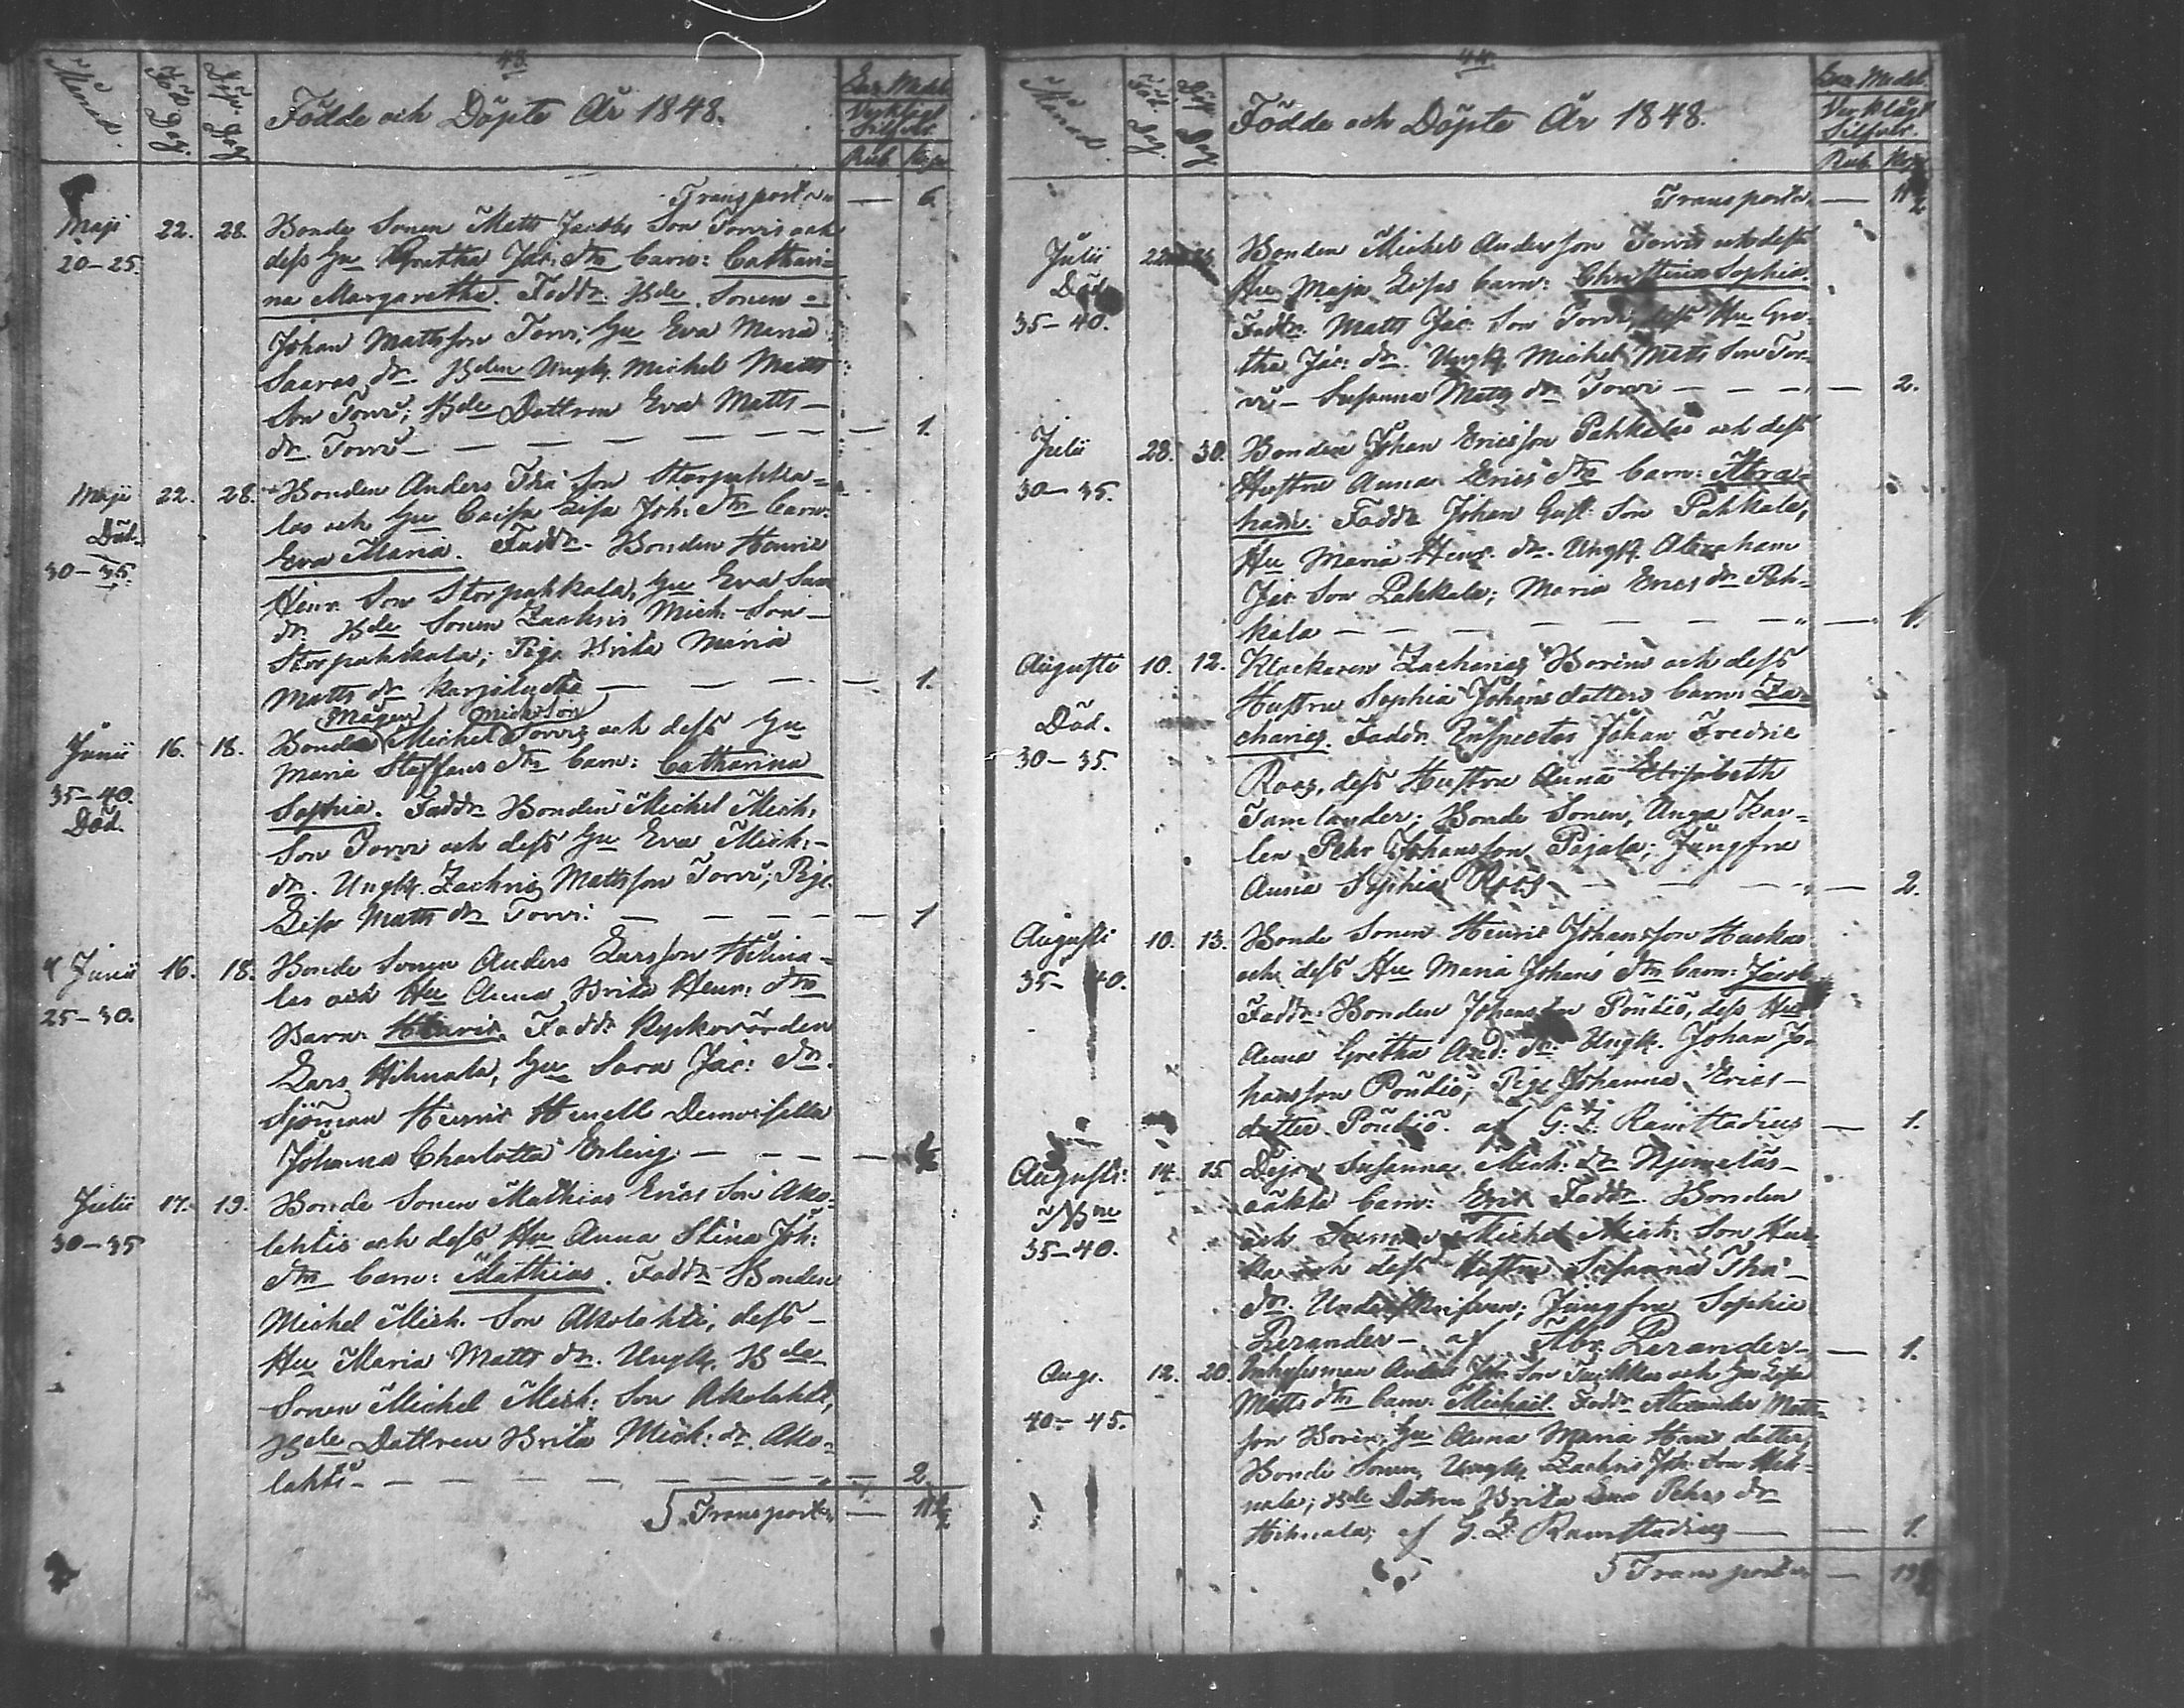 43.
Månad.
Föd. Dag.
Döp. Dag
Födde och Döpte År 1848.
Verkligt Silfver.
Rub. Kop.
Transport — 6.
Maji 22. 28. Bonde Sonen Matts Jacobs Son Torvis och
20–25. dess Hu Gretha Jac. dtr barn: Cathari=
na Margaretha. Faddr. Bde Sonen
Johan Mattsson Torvi; Hu Eva Maria
dr. Ungk. Michel Matts
Son Torvi; Bde Dottren Eva Matts—
dr. Torvi — — — — — — — 1.
Maji 22. 28. Bonden Anders Son Storpahka=
Död. las och Hu Caisa Lisa Joh. dtr barn:
30–35. Eva Maria. Faddr. Bonden Henric
Henr. Son Storpahkala, Hu Eva
dr. Bde Sonen Zachris Mich. Son—
Storpahkala; Piga Brita Maria
Matts dr — — — 1.
Mågen Michelsson
Junii 16. 18. Bonde Michel Torvis och dess Hu
35–40. Maria Staffans dtr barn: Catharina
Död. Sophia. Faddr. Bonden Michel Mich.
Son Torvi och dess Hu Eva Mich.—
dr. Ungk. Zachris Mattsson Torvi; Piga
Lisa Matts dr Torvi. — — — — 1
Junii 16. 18. Bonde Sonen Anders Larsson Hihna=
25–30. las och Hu Anna Brita Henr. dtr
Barn: Henric. Faddr. Kyrkovärden
Lars Hihnala, Hu Sara Jac: dr.
Sjöman Henric Henell Demoiselle
Johanna Charlotta Erling. — — — —
Julii 17. 19. Bonde Sonen Mathias Erics Son Ako=
30–35 lahtis och dess Hu Anna Stina Joh:
dtr barn: Mathias. Faddr. Bonden
Michel Mich. Son Akolahti, dess—
Hu Maria Matts dr. Ungk. Bde
Sonen Michel Mich: Son Akolahti,
Bde Dottren Brita Mich: dr. Ako=
lahti — — — — — — — — 2.
Transport —
44.
Månad.
Föd. Dag.
Döp. Dag
Födde och Döpte År 1848.
Verkligt Silfver.
Rub. Kop.
Transport —
Julii 22. Bonden Michel Andersson Torvis och dess
Död. Hu Maja Lisas barn: Christina Sophia.
35–40. Faddr. Matts Jac: Son Torvi, dess Hu Gre=
tha Jac: dr. Ungk. Michel Matts Son Tor=
vi — Susanna Matts dr Torvi — — — 2.
Julii 28. 30. Bonden Johan Ericsson Pahkalas och dess
30–35. Hustru Anna Erics dtr barn: Abra=
ham. Faddr. Johan Gust. Son Pahkala,
Hu Maria Henr. dr. Ungk. Abraham
Jac Son Pahkala; Maria Erics dr Pah=
kala — — — — — — — 1.
Augusti 10. 12. Klockaren Zacharias Borins och dess
Död. Hustru Sophia Johans dotters barn: Za=
30–35. charias. Faddr. Inspector Johan Fredric
Roos, dess Hustru Anna Elisabeth
Tamlander; Bonde Sonen, Unga Kar=
len Pehr Johansson Pajala; Jungfru
Anna Sophia Roos — — — 2.
Augusti 10. 13. Bonde Sonen Henric Johansson Huckas
35–40. och dess Hu Maria Johans dtr barn: Jacob
Faddr. Bonden Johansson Pöndiö, dess Hu
Anna Gretha And: dr. Ungk. Johan Jo=
hansson Pöndiö, Piga Johanna Erics—
dotter Pöndiö. af G. Z. Ramstadius — 1.
Augusti: 14. 15. Susanna Mich: dr
oäkta barn: Eric Faddr. Bonden
35–40. och Michel Mich: Son
och dess Hustru Susanna
dr. Jungfru Sophie
Perander — af Abr. Perander — 1.
Aug. 12. 20. Inhysman Anders Joh. Son och Hu Lisa
40–45. Matts dtr barn: Michaël. Faddr. Alexander Matts=
son Borin, Hu Anna Maria Hans dotter,
Bonde Sonen, Ungk. Zachris Joh: Son Hih=
nala; Bde Dotren Brita Pehrs dr
Hihnala, af G. Z. Ramstadius — — 1.
Transport —